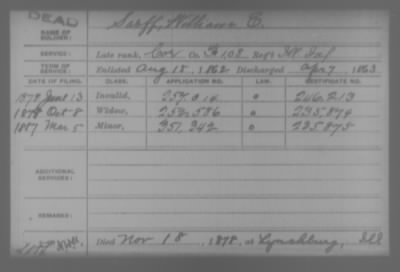 DEAD
NAME OF SOLDIER: William
SERVICE: Late rank, Cor Co. G 103 Reg't Ill Inf
TERM OF SERVICE: Enlisted Aug 18, 1862 Discharged Apr 7, 1863
DATE OF FILING. CLASS. APPLICATION NO. LAW. CERTIFICATE NO.
1878 June 13 Invalid, 257.014 246.213
1878 Oct 8 Widow, 252,586 235.874
1887 Mar 5 Minor, 351.242 235.875
ADDITIONAL SERVICES:
REMARKS:
Died Nov 18, 1878, at Lynchburg, Ill